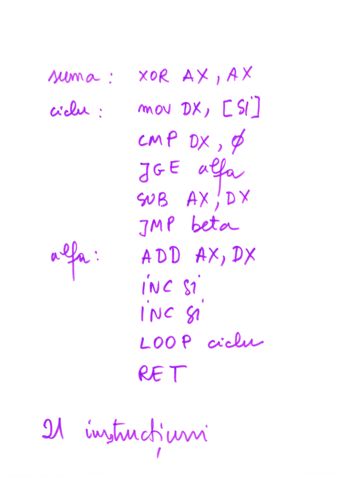 suma: XOR AX, AX
ciclu: mov DX, [SI]
CMP DX, 0
JGE alfa
SUB AX, DX
JMP beta
alfa: ADD AX, DX
INC SI
INC SI
LOOP ciclu
RET
21 instrucțiuni